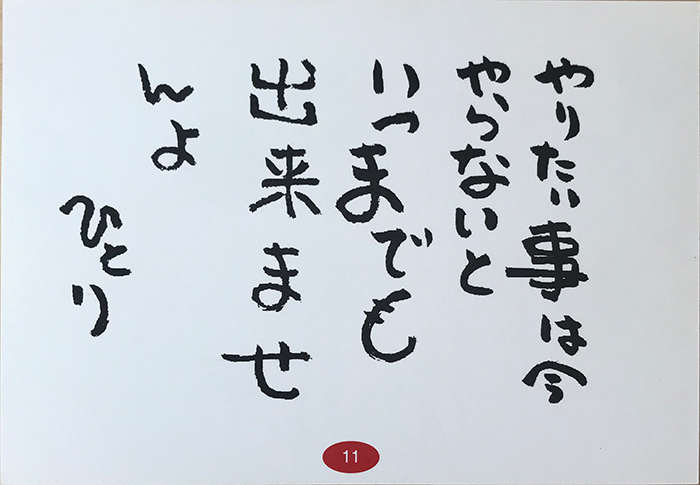 やりたい事は今
やらないと
いつまでも
出来ませ
んよ
ひとり
11